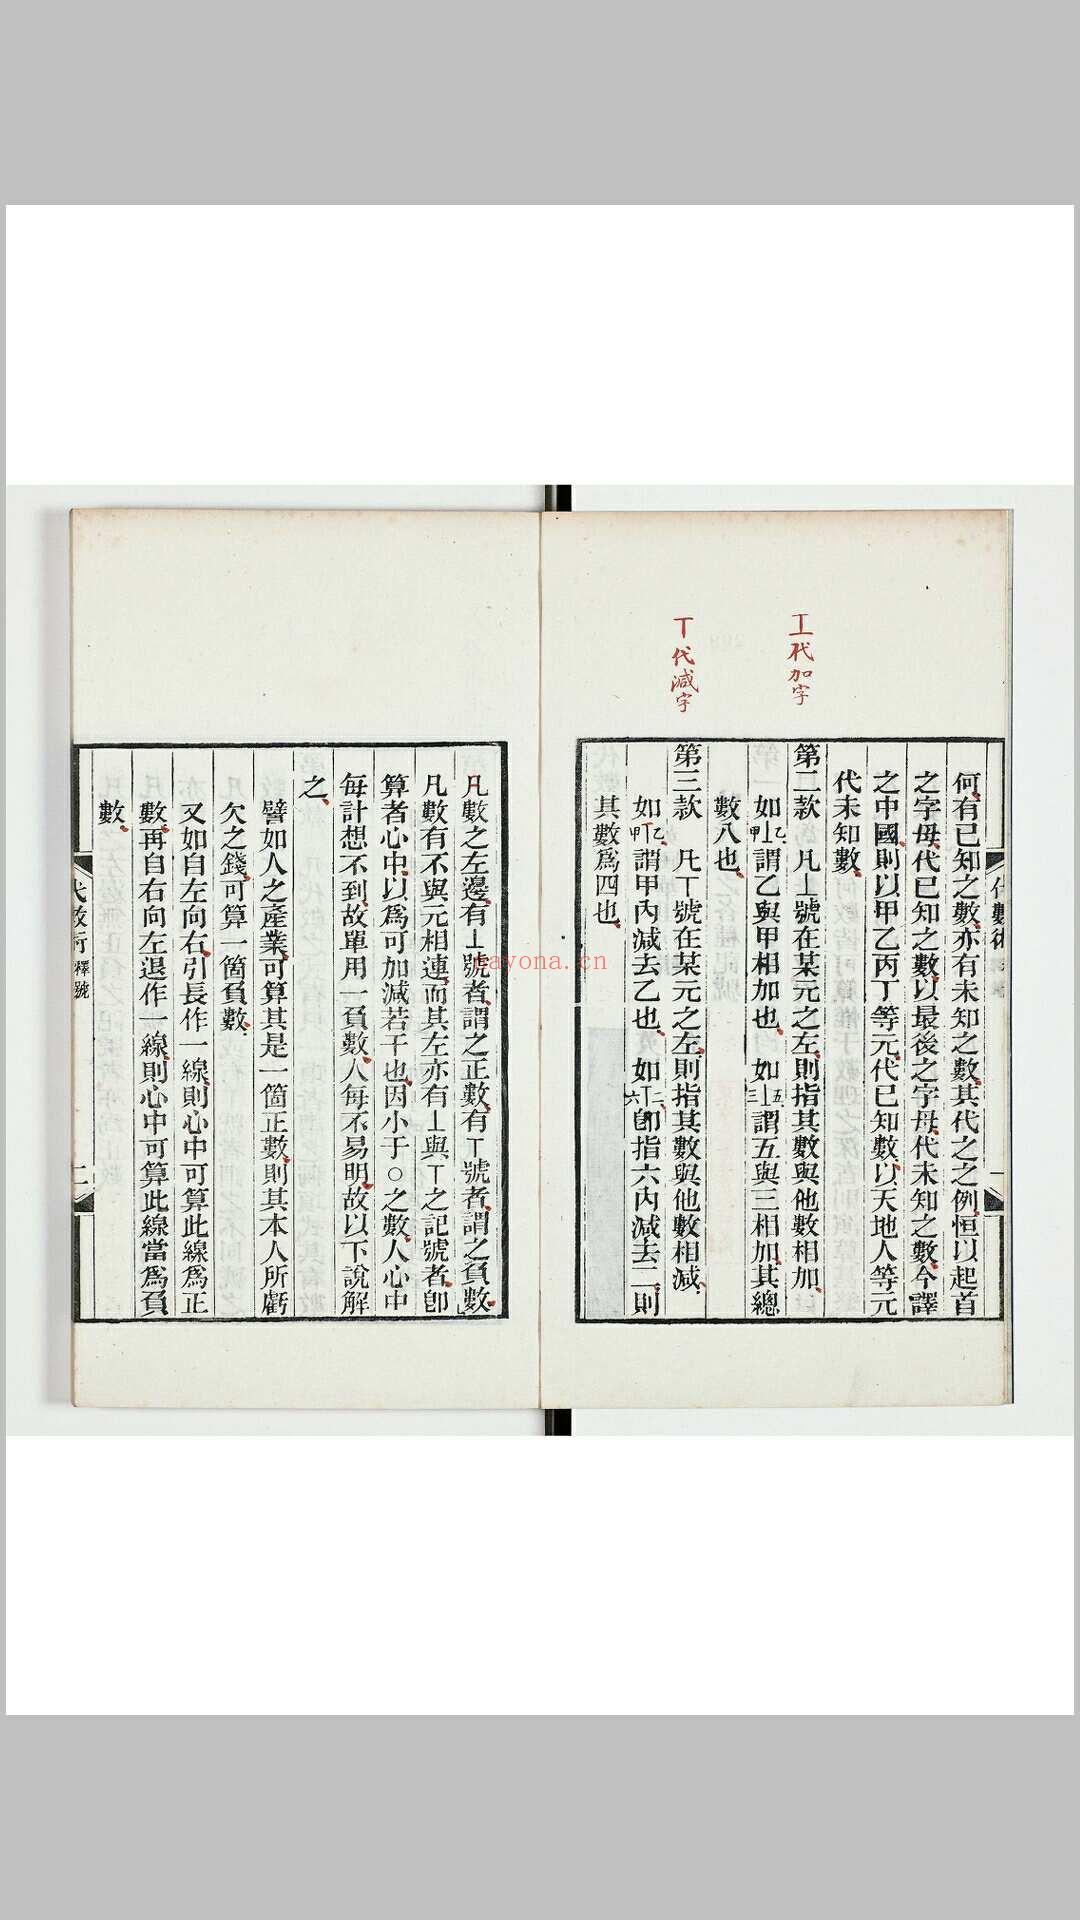 ⊥代加字
丅代減字
代數術
一
何有已知之數亦有未知之數其代之之例恒以起首
之字母代已知之數以最後之字母代未知之數今譯
之中國則以甲乙丙丁等元代已知數以天地人等元
代未知數
第二款 凡⊥號在某元之左則指其數與他數相加
如乙⊥甲謂乙與甲相加也 如五⊥三謂五與三相加其總
數八也
第三款 凡丅號在某元之左則指其數與他數相減
如乙丅甲謂甲內減去乙也 如二丅六卽指六內減去二則
其數爲四也
凡數之左邊有⊥號者謂之正數有丅號者謂之負數
凡數有不與元相連而其左亦有⊥與丅之記號者卽
算者心中以爲可加減若干也因小于〇之數人心中
每計想不到故單用一負數人每不易明故以下說解
之
譬如人之產業可算其是一箇正數則其本人所虧
欠之錢可算一箇負數
又如自左向右引長作一線則心中可算此線爲正
數再自右向左退作一線則心中可算此線當爲負
數
代數術 釋號
二
nayona.cn